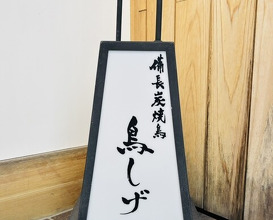 備長炭焼鳥
鳥しげ